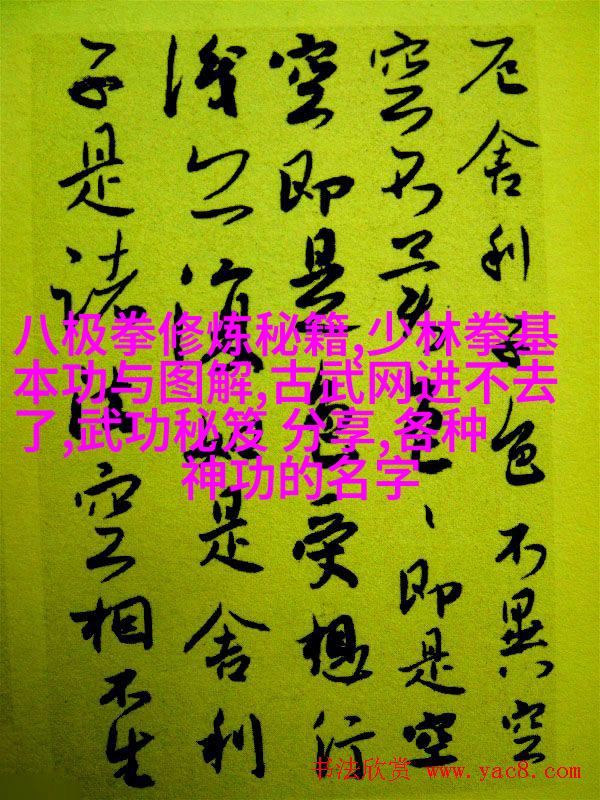 厄舍利子色不異空
空不異色、即是空
空即是色受想行
識亦復如是舍利
子是諸法空相不生
八极拳修炼秘籍,少林拳基
本功与图解,古武网进不去
了,武功秘笈 分享,各种
神功的名字
书法欣赏 www.yac8.com